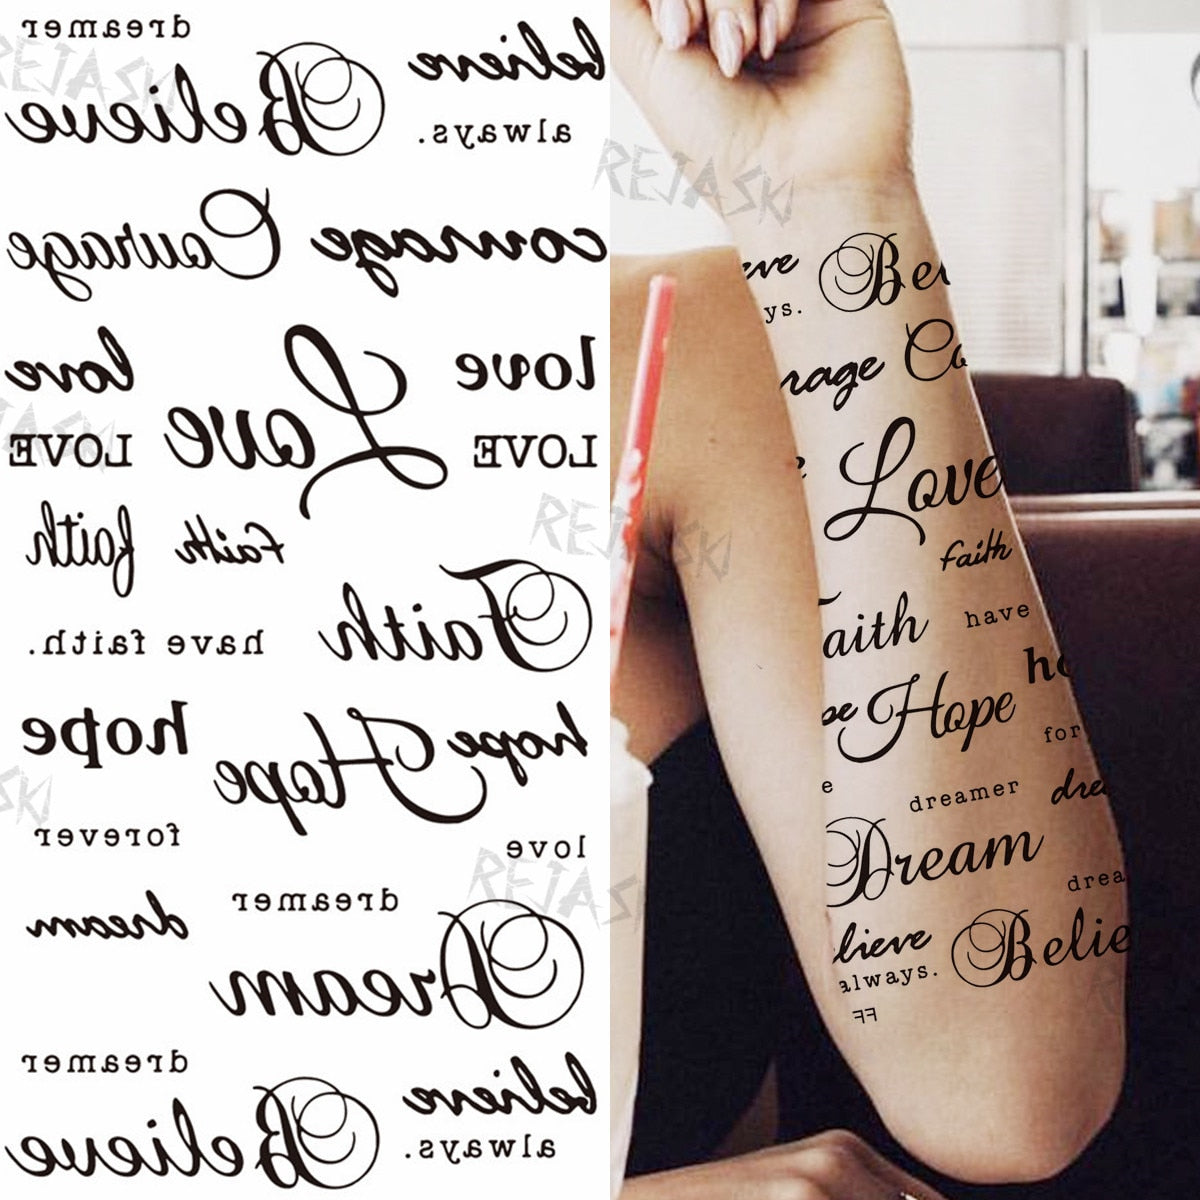 dreamer
Believe believe
always.
Courage courage
love Love love
LOVE LOVE
faith faith
Faith
have faith.
hope Hope hope
forever
love
dreamer
dream
Dream
dreamer
Believe believe
always.
REJASKI
REJASKI
REJASKI
REJASKI
eve Bel
ys.
rage Co
Love
faith
aith
have
ho
pe Hope
for
e
dreamer
drea
Dream
drea
lieve Belie
always.
FF